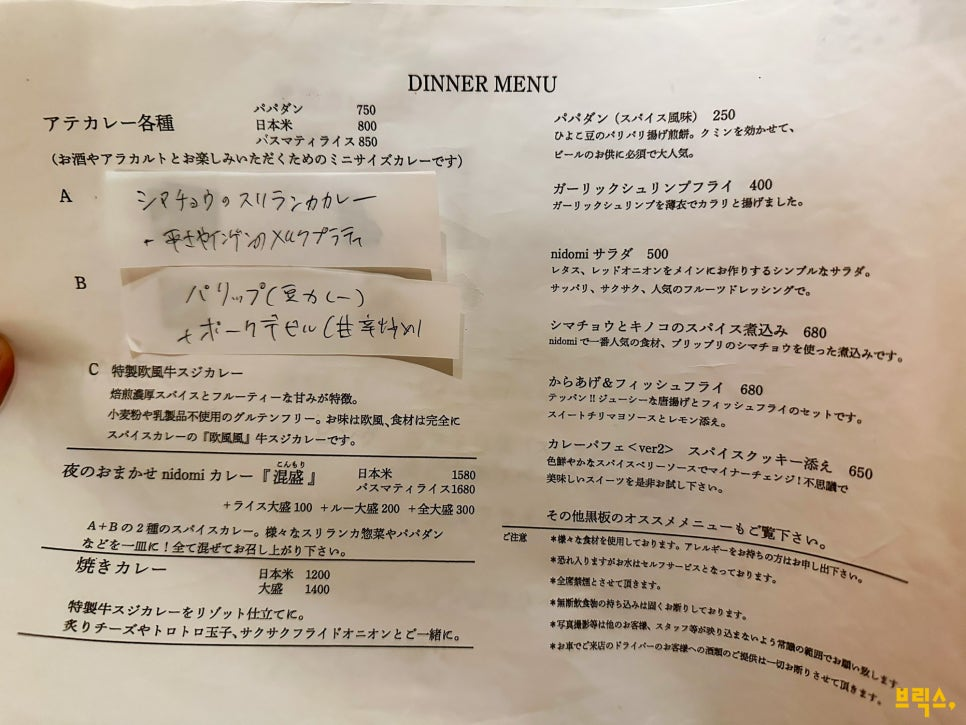 DINNER MENU
アテカレー各種
パパダン 750
日本米 800
バスマティライス 850
(お酒やアラカルトとお楽しみいただくためのミニサイズカレーです)
A
シマチョウのスリランカカレー
B
パリップ(豆カレー)
+ポークデビル(甘辛炒め)
C 特製欧風牛スジカレー
焙煎濃厚スパイスとフルーティーな甘みが特徴。
小麦粉や乳製品不使用のグルテンフリー。お味は欧風、食材は完全に
スパイスカレーの『欧風風』牛スジカレーです。
こんもり
夜のおまかせ nidomi カレー『混盛』
日本米 1580
バスマティライス1680
+ライス大盛 100 +ルー大盛 200 +全大盛 300
A+Bの2種のスパイスカレー。様々なスリランカ惣菜やパパダン
などを一皿に!全て混ぜてお召し上がり下さい。
焼きカレー
日本米 1200
大盛 1400
特製牛スジカレーをリゾット仕立てに。
炙りチーズやトロトロ玉子、サクサクフライドオニオンとご一緒に。
パパダン (スパイス風味) 250
ひよこ豆のパリパリ揚げ煎餅。クミンを効かせて、
ビールのお供に必須で大人気。
ガーリックシュリンプフライ 400
ガーリックシュリンプを薄衣でカラリと揚げました。
nidomi サラダ 500
レタス、レッドオニオンをメインにお作りするシンプルなサラダ。
サッパリ、サクサク、人気のフルーツドレッシングで。
シマチョウとキノコのスパイス煮込み 680
nidomi で一番人気の食材、プリップリのシマチョウを使った煮込みです。
からあげ&フィッシュフライ 680
テッパン!!ジューシーな唐揚げとフィッシュフライのセットです。
スイートチリマヨソースとレモン添え。
カレーパフェ<ver2> スパイスクッキー添え 650
色鮮やかなスパイスベリーソースでマイナーチェンジ!不思議で
美味しいスイーツを是非お試し下さい。
その他黒板のオススメメニューもご覧下さい。
ご注意
*様々な食材を使用しております。アレルギーをお持ちの方はお申し出下さい。
*恐れ入りますがお水はセルフサービスとなっております。
*全席禁煙とさせて頂きます。
*無断飲食物の持ち込みは固くお断りしております。
*写真撮影等は他のお客様、スタッフ等が映り込まないよう常識の範囲でお願い致します。
*お車でご来店のドライバーのお客様への酒類のご提供は一切お断りさせて頂きます。
브릭스,